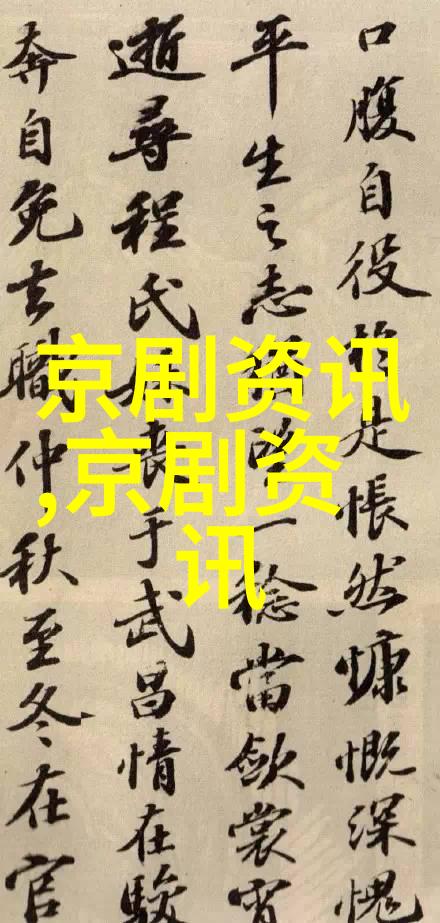 口腹自役於是悵然慷慨深愧
平生之志猶望一稔當斂裳宵
逝尋程氏妹喪于武昌情在駿
奔自免去職仲秋至冬在官
京剧资讯
,京剧资
讯